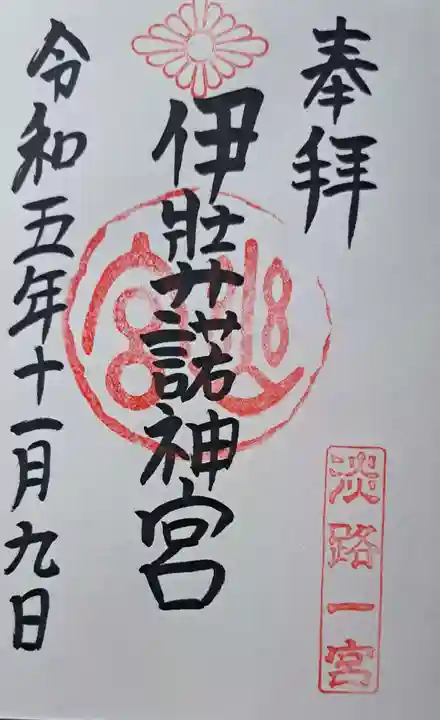 奉拝
淡路一宮
伊弉諾神宮
令和五年十一月九日